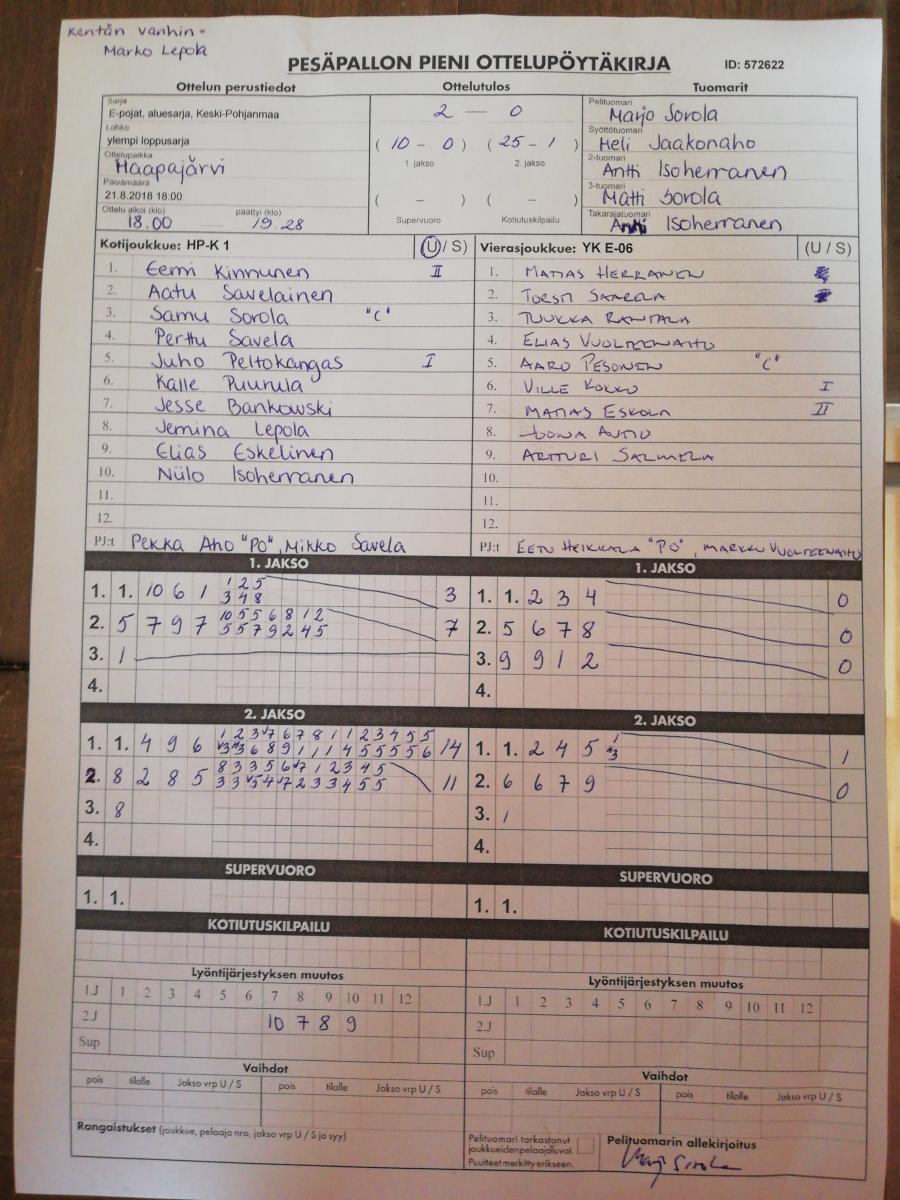 Kentän vanhin -
Marko Lepola
PESÄPALLON PIENI OTTELUPÖYTÄKIRJA ID: 572622
Ottelun perustiedot Ottelutulos Tuomarit
Sarja
E-pojat, aluesarja, Keski-Pohjanmaa
Lohko
ylempi loppusarja
Ottelupaikka
Haapajärvi
Päivämäärä
21.8.2018 18:00
Ottelu alkoi (klo) päättyi (klo)
18.00 19.28
2 – 0
( 10 – 0 ) ( 25 – 1 )
1. jakso 2. jakso
( – ) ( – )
Supervuoro Kotiutuskilpailu
Pelituomari
Marjo Sorola
Syöttötuomari
Heli Jaakonaho
2-tuomari
Antti Isoherranen
3-tuomari
Matti Sorola
Takarajatuomari
Antti Isoherranen
Kotijoukkue: HP-K 1 (U / S)
1. Eemi Kinnunen II
2. Aatu Savelainen
3. Samu Sorola "C"
4. Perttu Savela
5. Juho Peltokangas I
6. Kalle Puurula
7. Jesse Bankowski
8. Jemina Lepola
9. Elias Eskelinen
10. Niilo Isoherranen
11.
12.
PJ:t Pekka Aho "PO", Mikko Savela
Vierasjoukkue: YK E-06 (U / S)
1. MATIAS HERRANEN
2. TORSTI SAARELA
3. TUUKKA RANTALA
4. ELIAS VUOLTEENAHO
5. AARO PESONEN "C"
6. VILLE KOKKO I
7. MATIAS ESKOLA II
8. JOONA AUTIO
9. ARTTURI SALMELA
10.
11.
12.
PJ:t EETU HEIKKALA "PO", MARKKU VUOLTEENAHO
1. JAKSO
1. 1. 10 6 1 1 2 5 3
3 4 8
2. 5 7 9 7 10 5 5 6 8 1 2 7
5 5 7 9 2 4 5
3. 1
4.
1. JAKSO
1. 1. 2 3 4 0
2. 5 6 7 8 0
3. 9 9 1 2 0
4.
2. JAKSO
1. 1. 4 9 6 14
2. 8 2 8 5 11
3. 8
4.
2. JAKSO
1. 1. 2 4 5 1 1
2. 6 6 7 9 0
3. 1
4.
SUPERVUORO
1. 1.
SUPERVUORO
1. 1.
KOTIUTUSKILPAILU
KOTIUTUSKILPAILU
Lyöntijärjestyksen muutos
1.J 1 2 3 4 5 6 7 8 9 10 11 12
2.J 10 7 8 9
Sup
Lyöntijärjestyksen muutos
1.J 1 2 3 4 5 6 7 8 9 10 11 12
2.J
Sup
Vaihdot
pois tilalle Jakso vrp U / S pois tilalle Jakso vrp U / S
Vaihdot
pois tilalle Jakso vrp U / S pois tilalle Jakso vrp U / S
Rangaistukset (joukkue, pelaaja nro, jakso vrp U / S ja syy)
Pelituomari tarkastanut
joukkueiden pelaajaluvat.
Puutteet merkitty erikseen.
Pelituomarin allekirjoitus
Marjo Sorola